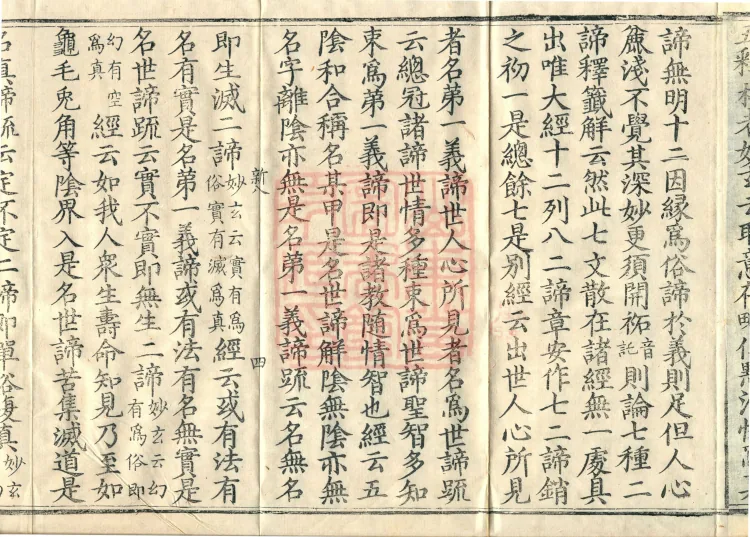 諦無明十二因緣爲俗諦於義則足但人心
麁淺不覺其深妙更須開祏音託則論七種二
諦釋籤解云然此七文散在諸經無一處具
出唯大經十二列八二諦章安作七二諦銷
之初一是總餘七是別經云出世人心所見
者名第一義諦世人心所見者名爲世諦䟽
云總冠諸諦世情多種束爲世諦聖智多知
束爲第一義諦即是諸教随情智也經云五
陰和合稱名某甲是名世諦解陰無陰亦無
名字離陰亦無是名第一義諦䟽云名無名
四
即生滅二諦妙玄云實有爲俗實有滅爲真經云或有法有
名有實是名第一義諦或有法有名無實是
名世諦䟽云實不實即無生二諦妙玄云幻有爲俗即
幻有空爲真經云如我人衆生壽命知見乃至如
龜毛兎角等陰界入是名世諦苦集滅道是
名真諦䟽云定不定二諦即單俗復真妙玄